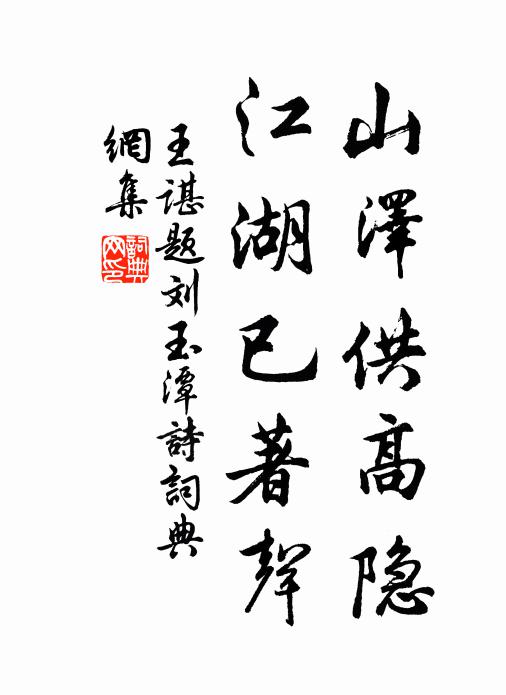 山澤供高隐
江湖已著聲
王諶題刘玉潭詩詞典
網集
詞典網印